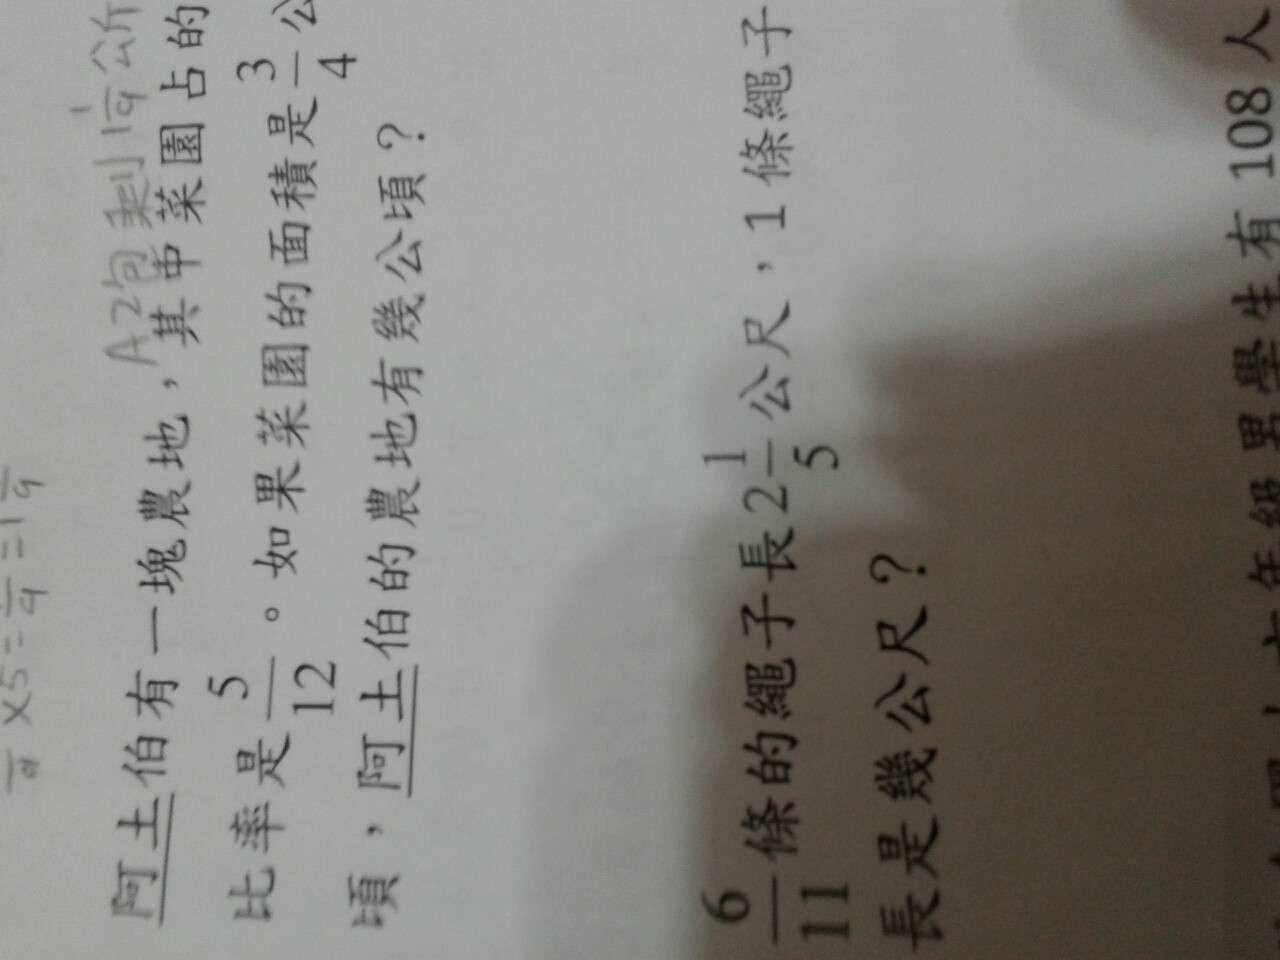 ×5= =1
A2包剩1 1/9公斤
阿土伯有一塊農地，其中菜園占的
比率是5/12。如果菜園的面積是3/4公
頃，阿土伯的農地有幾公頃？
6/11條的繩子長2 1/5公尺，1條繩子
長是幾公尺？
年級男學生有108人